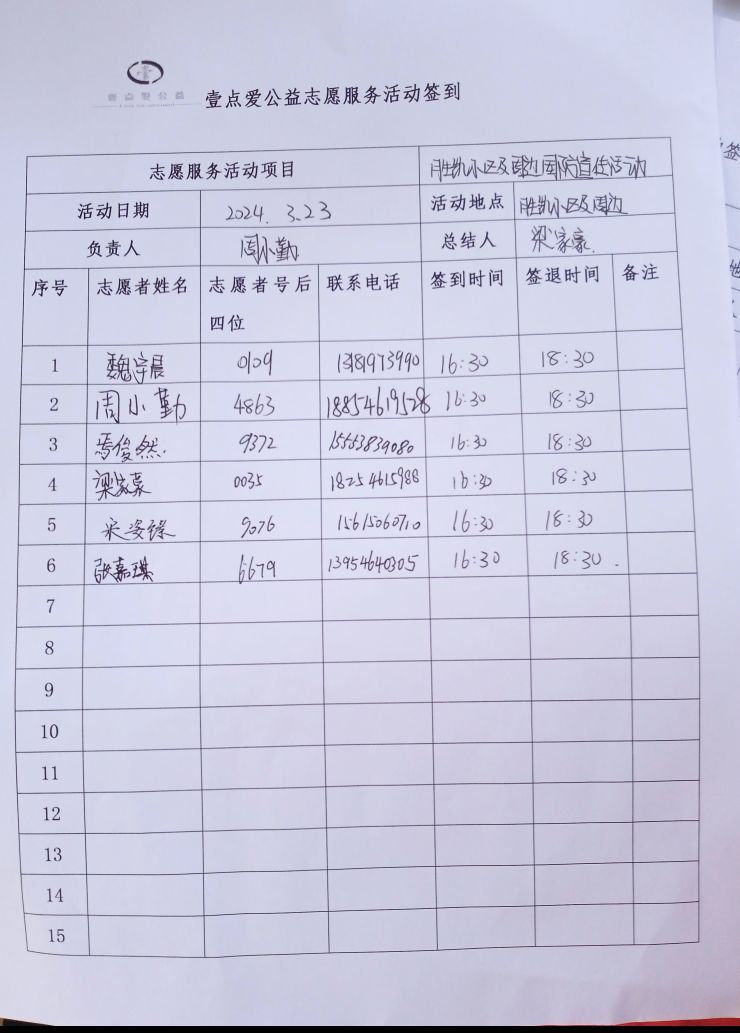 壹点爱公益
壹点爱公益志愿服务活动签到
志愿服务活动项目 胜凯小区及周边国防宣传活动
活动日期 2024. 3.23 活动地点 胜凯小区及周边
负责人 周小勤 总结人 梁家豪
序号 志愿者姓名 志愿者号后 联系电话 签到时间 签退时间 备注
四位
1 魏宇晨 0109 16:30 18:30
2 周小勤 4863 18854619528 16:30 18:30
3 俊然 9372 15553839080 16:30 18:30
4 梁家豪 0035 18254615988 16:30 18:30
5 宋姿臻 9076 15615060710 16:30 18:30
6 张嘉琪 6679 13954640305 16:30 18:30
7
8
9
10
11
12
13
14
15
签